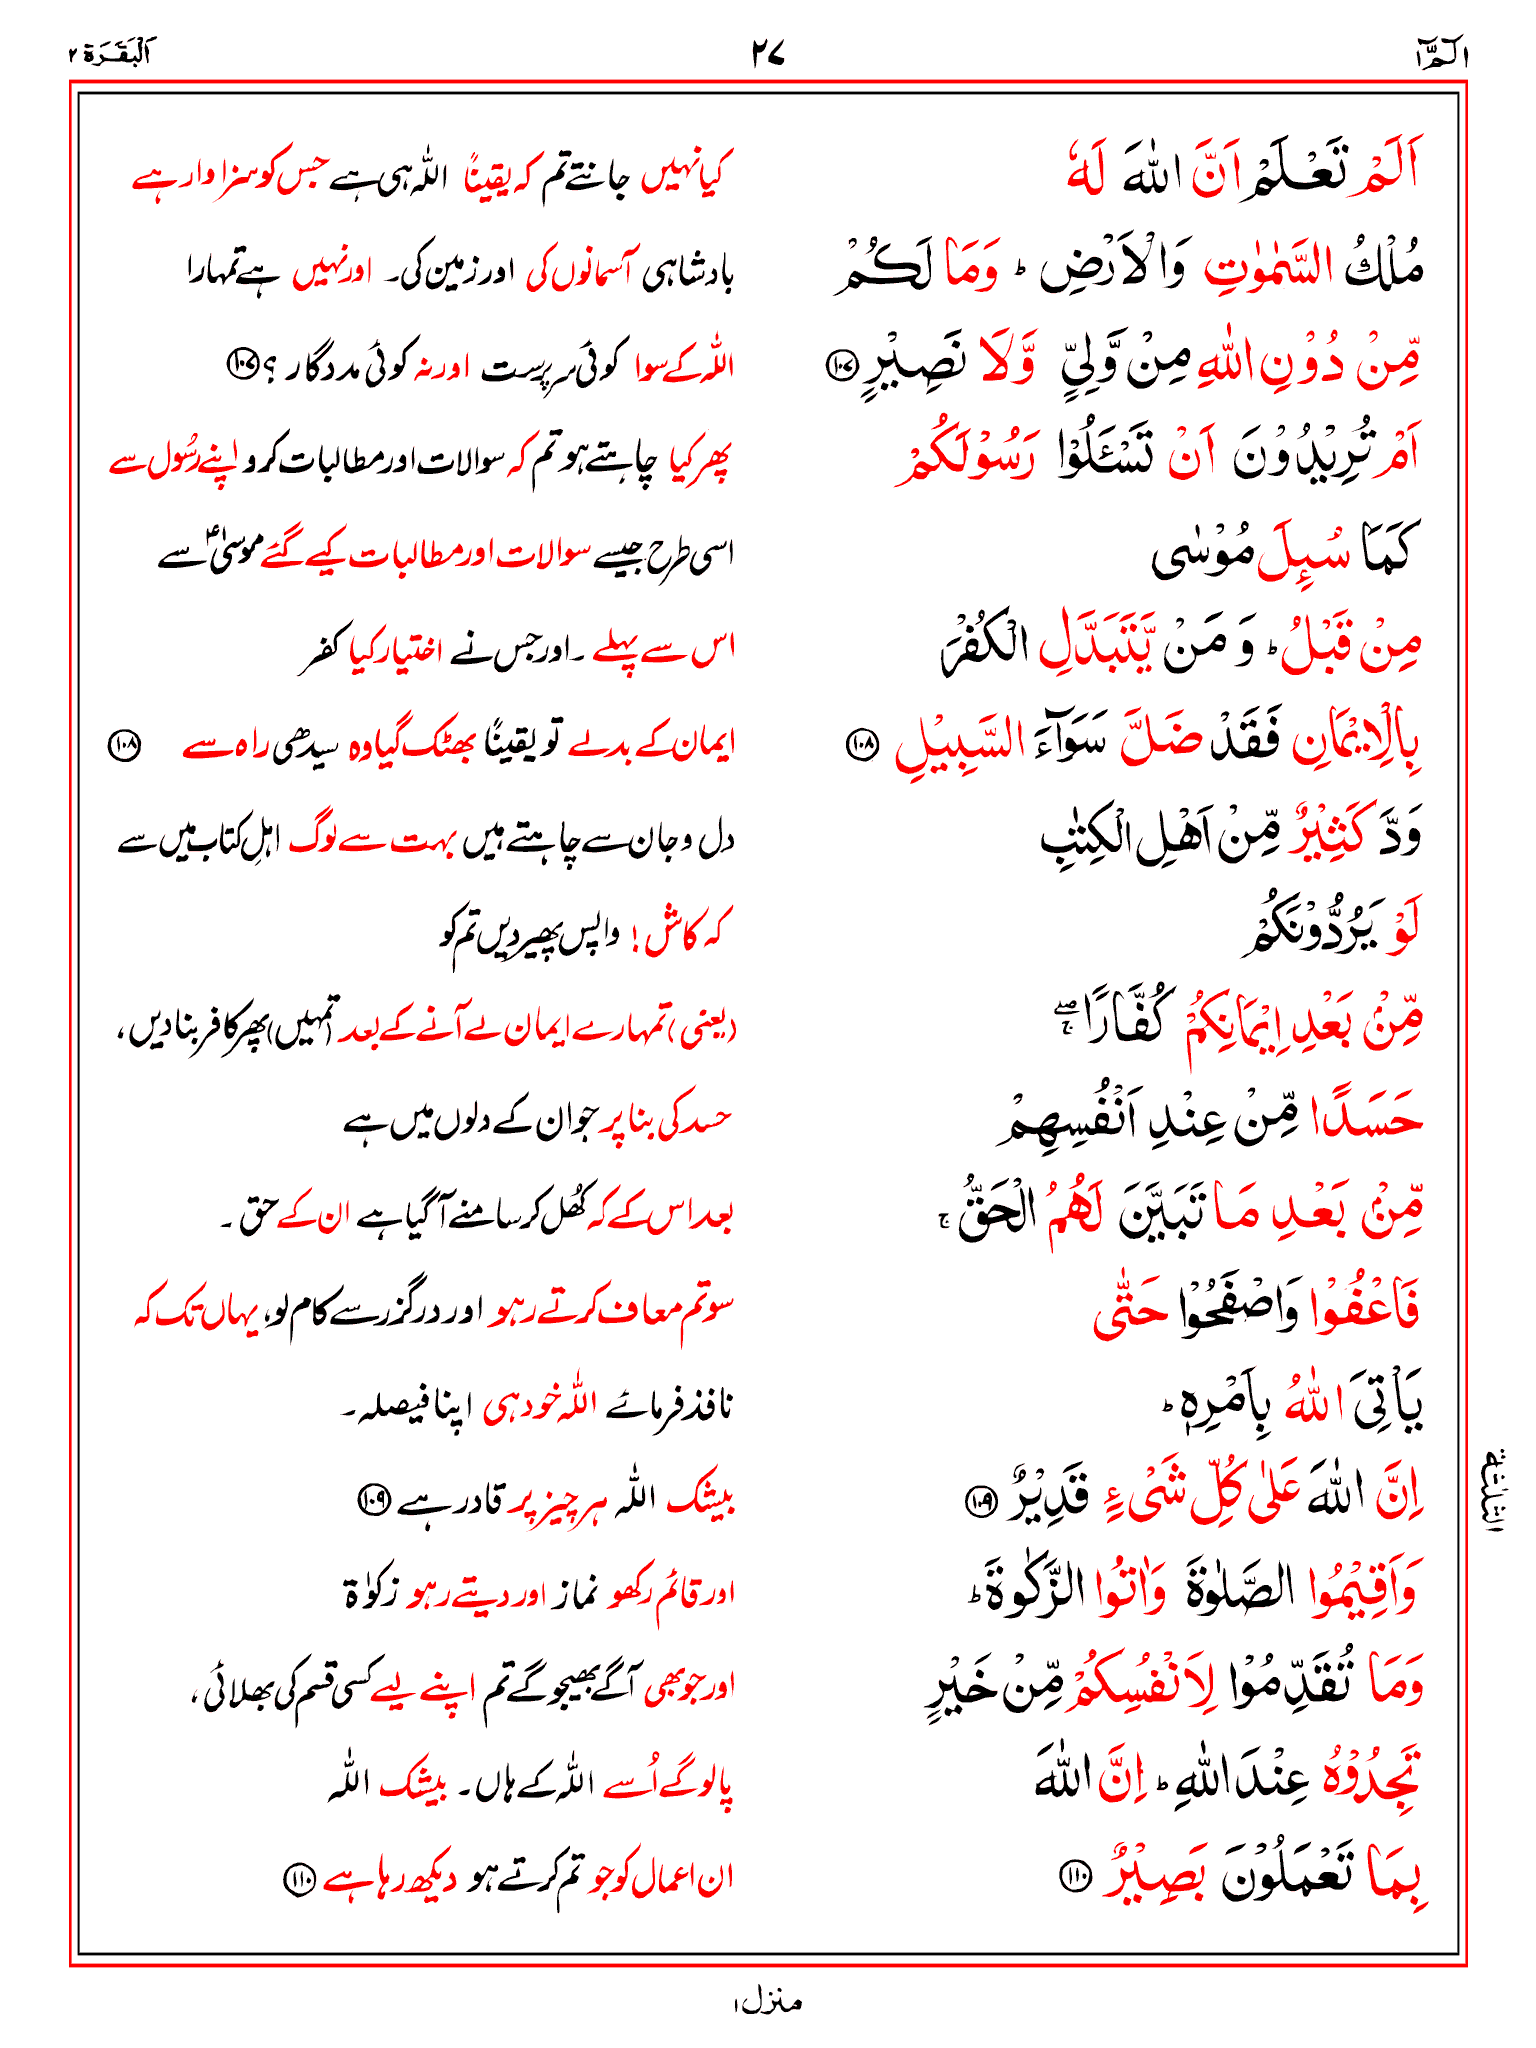 الٓمّٓ ۱ ۲۷ اَلْبَقَرَة ۲
اَلَمْ تَعْلَمْ اَنَّ اللّٰهَ لَهٗ کیا نہیں جانتے تم کہ یقیناً اللہ ہی ہے جس کو سزاوار ہے
مُلْكُ السَّمٰوٰتِ وَالْاَرْضِ ؕ وَمَا لَكُمْ بادشاہی آسمانوں کی اور زمین کی۔ اور نہیں ہے تمہارا
مِّنْ دُوْنِ اللّٰهِ مِنْ وَّلِیٍّ وَّلَا نَصِیْرٍ ۝۱۰۷ اللہ کے سوا کوئی سرپرست اور نہ کوئی مددگار ؟ ۝۱۰۷
اَمْ تُرِیْدُوْنَ اَنْ تَسْـَٔلُوْا رَسُوْلَكُمْ پھر کیا چاہتے ہو تم کہ سوالات اور مطالبات کرو اپنے رسُول سے
كَمَا سُىِٕلَ مُوْسٰی اسی طرح جیسے سوالات اور مطالبات کیے گئے موسیٰؑ سے
مِنْ قَبْلُ ؕ وَ مَنْ یَّتَبَدَّلِ الْكُفْرَ اس سے پہلے ۔اور جس نے اختیار کیا کفر
بِالْاِیْمَانِ فَقَدْ ضَلَّ سَوَآءَ السَّبِیْلِ ۝۱۰۸ ایمان کے بدلے تو یقیناً بھٹک گیا وہ سیدھی راہ سے ۝۱۰۸
وَدَّ كَثِیْرٌ مِّنْ اَهْلِ الْكِتٰبِ دل و جان سے چاہتے ہیں بہت سے لوگ اہلِ کتاب میں سے
لَوْ یَرُدُّوْنَكُمْ کہ کاش! واپس پھیر دیں تم کو
مِّنْۢ بَعْدِ اِیْمَانِكُمْ كُفَّارًا ۖۚ (یعنی) تمہارے ایمان لے آنے کے بعد (تمہیں) پھر کافر بنا دیں،
حَسَدًا مِّنْ عِنْدِ اَنْفُسِهِمْ حسد کی بنا پر جو ان کے دلوں میں ہے
مِّنْۢ بَعْدِ مَا تَبَیَّنَ لَهُمُ الْحَقُّ ۚ بعد اس کے کہ کُھل کر سامنے آ گیا ہے ان کے حق ۔
فَاعْفُوْا وَاصْفَحُوْا حَتّٰی سو تم معاف کرتے رہو اور درگزر سے کام لو، یہاں تک کہ
یَاْتِیَ اللّٰهُ بِاَمْرِهٖ ؕ نافذ فرمائے اللہ خود ہی اپنا فیصلہ۔
اِنَّ اللّٰهَ عَلٰی كُلِّ شَیْءٍ قَدِیْرٌ ۝۱۰۹ بیشک اللہ ہر چیز پر قادر ہے ۝۱۰۹
الثلٰثة
وَاَقِیْمُوا الصَّلٰوةَ وَاٰتُوا الزَّكٰوةَ ؕ اور قائم رکھو نماز اور دیتے رہو زکوٰۃ
وَمَا تُقَدِّمُوْا لِاَنْفُسِكُمْ مِّنْ خَیْرٍ اور جو بھی آگے بھیجو گے تم اپنے لیے کسی قسم کی بھلائی،
تَجِدُوْهُ عِنْدَ اللّٰهِ ؕ اِنَّ اللّٰهَ پا لو گے اُسے اللہ کے ہاں۔ بیشک اللہ
بِمَا تَعْمَلُوْنَ بَصِیْرٌ ۝۱۱۰ ان اعمال کو جو تم کرتے ہو دیکھ رہا ہے ۝۱۱۰
منزل ۱